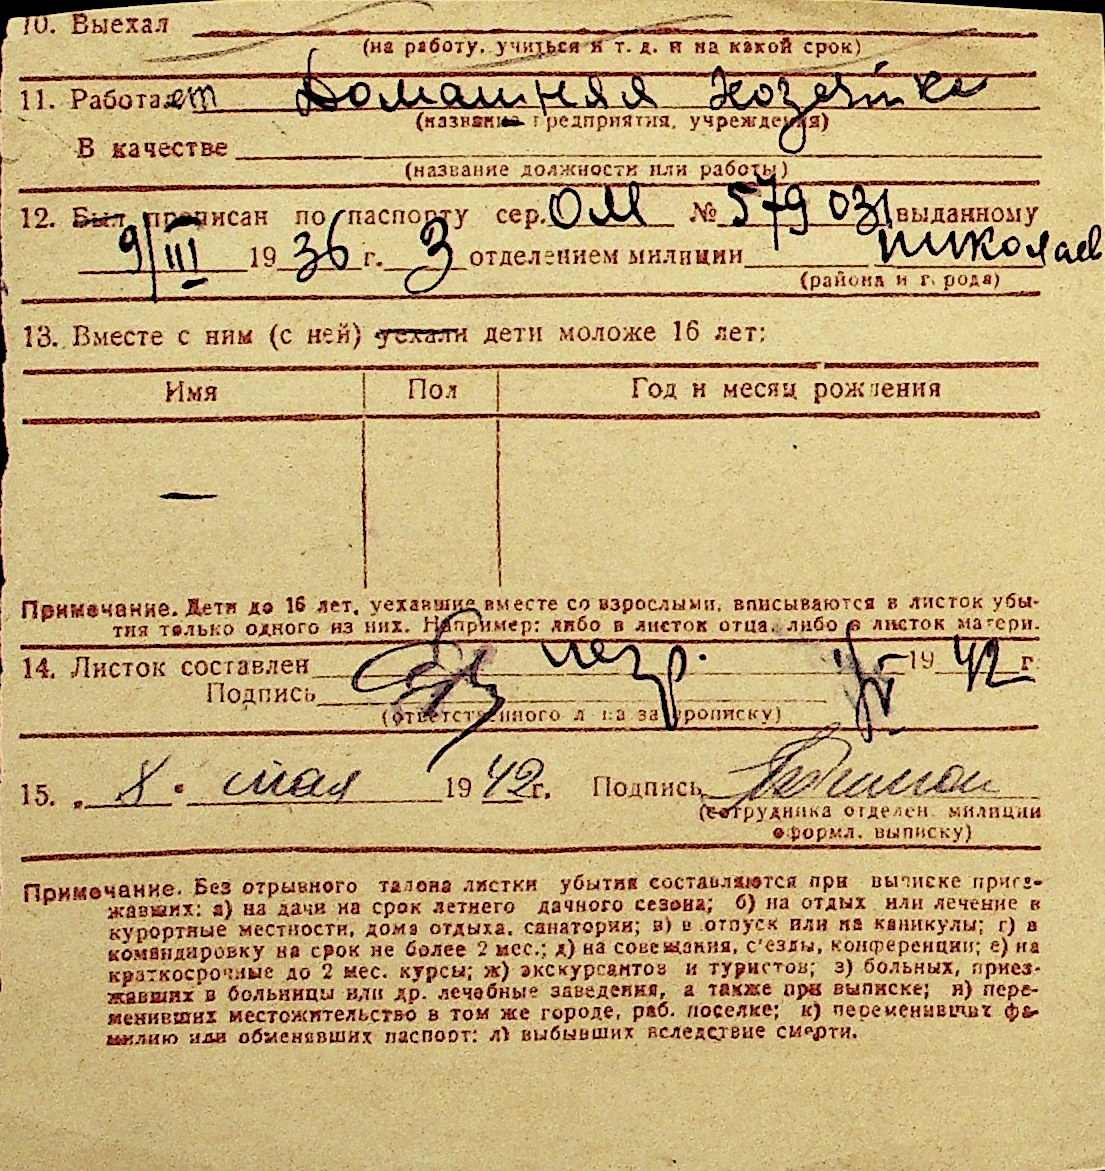 10. Выехал
(на работу, учиться и т. д. и на какой срок)
11. Работает Домашняя хозяйка
(название предприятия, учреждения)
В качестве
(название должности или работы)
12. Был прописан по паспорту сер. ОМ № 579031 выданному
9/III 1936 г. 3 отделением милиции Николаев
(района и города)
13. Вместе с ним (с ней) уехали дети моложе 16 лет:
Имя Пол Год и месяц рождения
—
Примечание. Дети до 16 лет, уехавшие вместе со взрослыми, вписываются в листок убы-
тия только одного из них. Например: либо в листок отца, либо в листок матери.
14. Листок составлен 1942 г.
Подпись
(ответственного лица за прописку)
15. „8" мая 1942 г. Подпись
(сотрудника отделен. милиции
оформл. выписку)
Примечание. Без отрывного талона листки убытия составляются при выписке приез-
жавших: а) на дачи на срок летнего дачного сезона; б) на отдых или лечение в
курортные местности, дома отдыха, санатории; в) в отпуск или на каникулы; г) в
командировку на срок не более 2 мес.; д) на совещания, с'езды, конференции; е) на
краткосрочные до 2 мес. курсы; ж) экскурсантов и туристов; з) больных, приез-
жавших в больницы или др. лечебные заведения, а также при выписке; и) пере-
менивших местожительство в том же городе, раб. поселке; к) переменивших фа-
милию или обменявших паспорт; л) выбывших вследствие смерти.